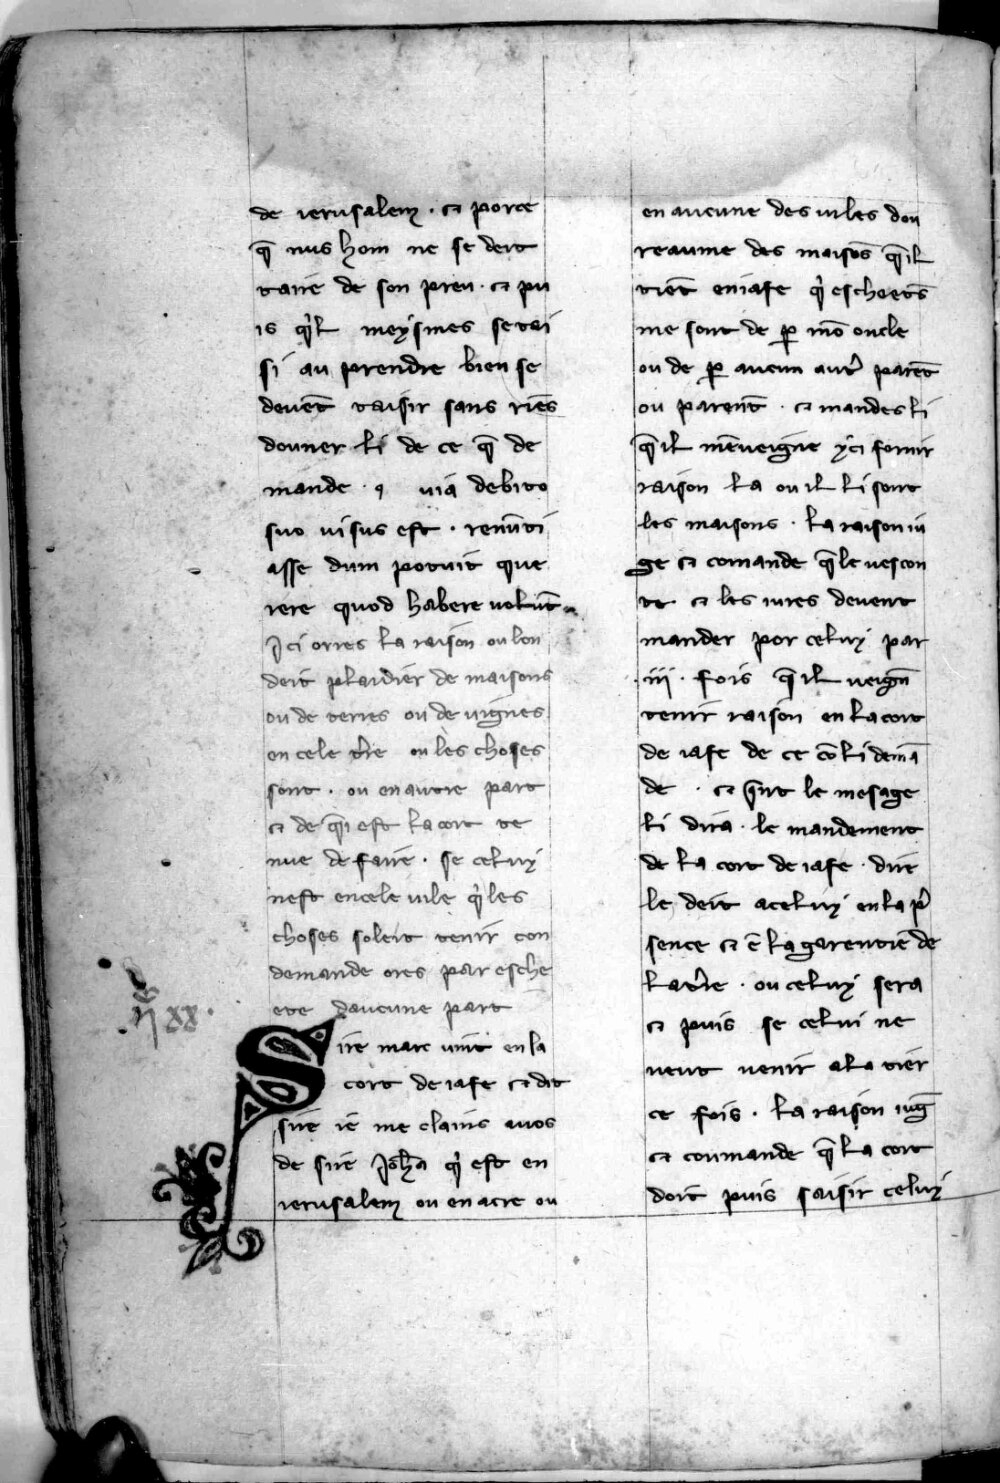 de ierusalem . ⁊ porce
q̄ nus hom ne se deit
taire de son preu . ⁊ pu
is q̍l meysmes se tai
si au prendre bien se
deuēt taisir sans riēs
douner li de ce q̄ de
mande . uia debito
suo uisus est . renūti
asse dum potuit que
rere quod habere uolūt
Ici orres la raison ou lon
deit plaidier de maisons
ou de terres ou de uignes
en cele t̍re ou les choses
sont . ou en autre part
⁊ de q̄i est la cort te
nue de faire . se celuy
nest en cele uile q̍ les
choses soleit tenir con
demande ores par esche
ete daucune part
.ijxx.
Sire marc uint en la
cort de iafe ⁊ dit
sire ie me clains auos
de sire Ioh̄a q̍ est en
ierusalem ou en acre ou
en aucune des uiles dou
reaume des maisōs q̄ il
tiēt en iafe q̍ escheetes
me sont de ꝑ mō oncle
ou de ꝑ aucun aut̍ parēt
ou parent . ⁊ mandes li
q̄ il mēueigne yci fornir
raison la ou il li sont
les maisons . la raison iu
ge ⁊ comande q̄ le uescon
te ⁊ les iures deuent
mander por celuy par
.iii. fois q̄ il ueign̄
tenir raison en la cort
de iafe de ce cō li demā
de . ⁊ q̄nt le mesage
li dira . le mandement
de la cort de iafe . dire
le deit a celuy en la p̍
sence ⁊ ē la garentie de
la t̍re . ou celuy sera
⁊ puis se celui ne
ueut uenir a la tier
ce fois . la raison iuḡ
⁊ coumande q̄ la cort
doit puis saisir celuy